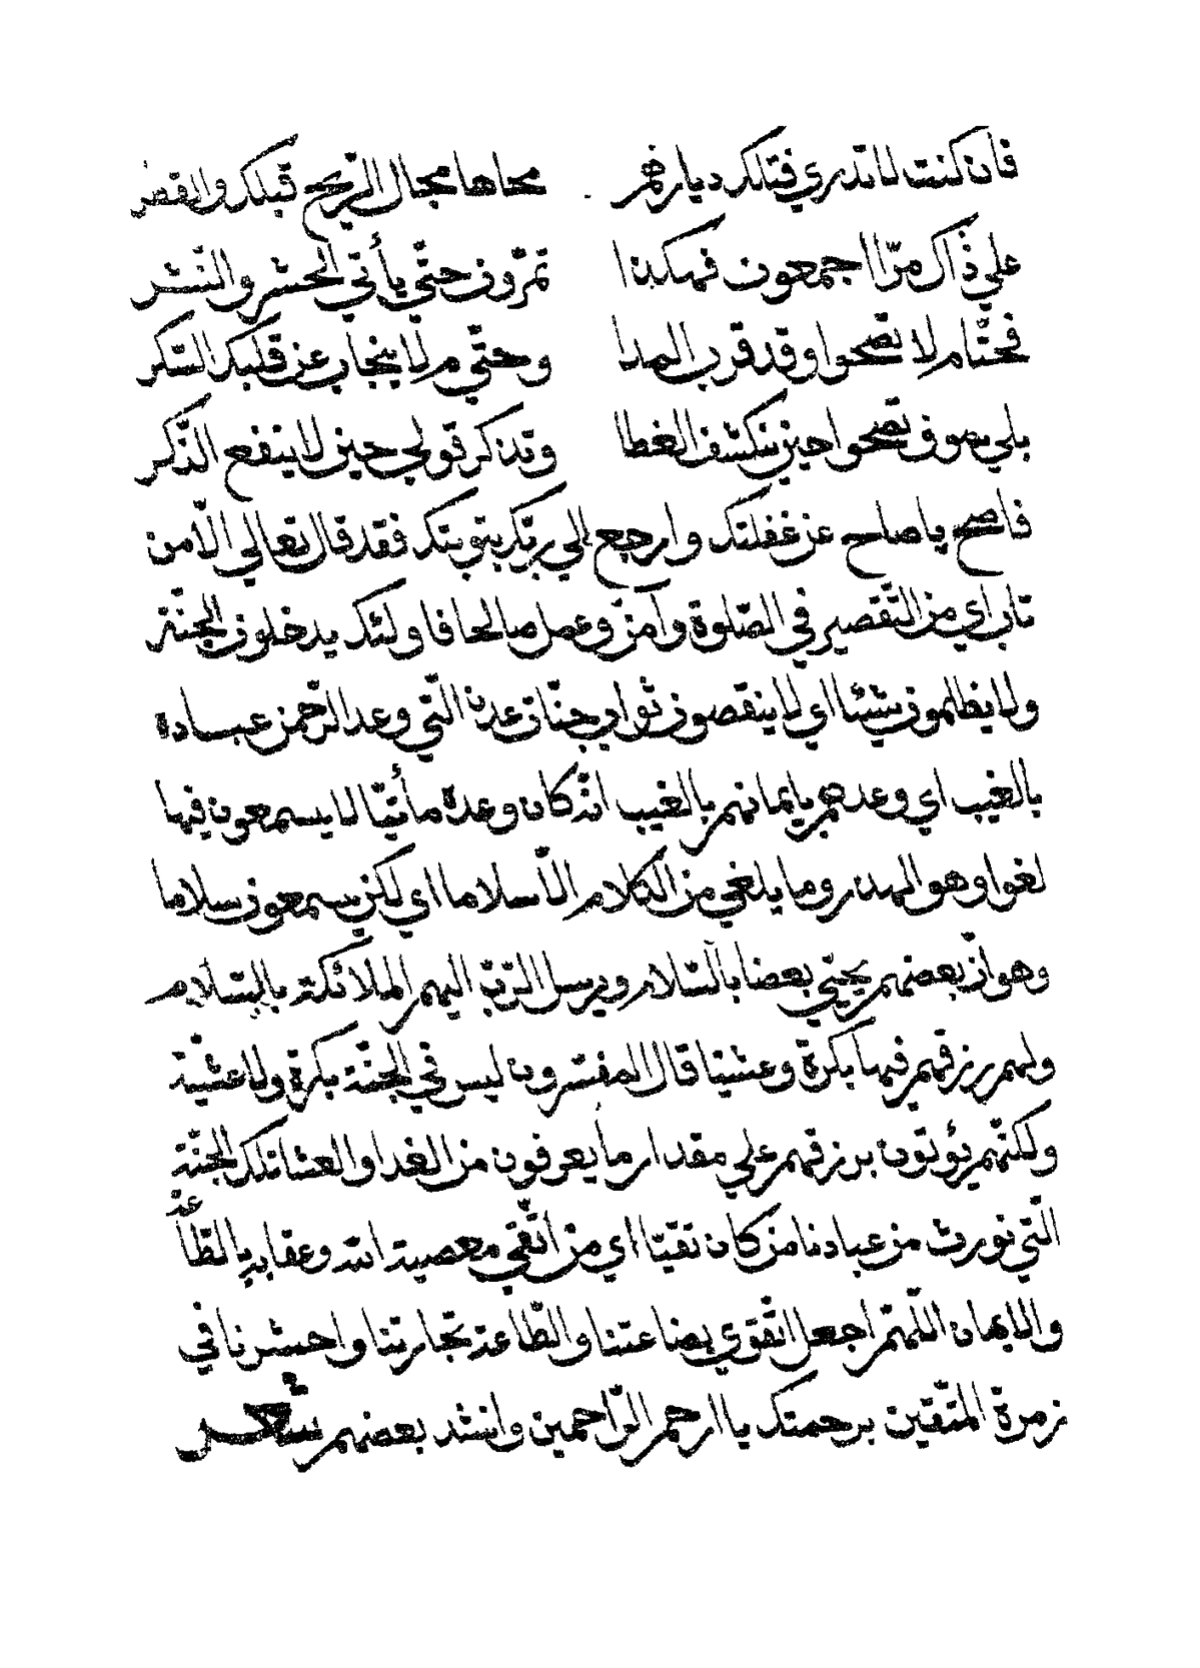 فان كنت لا تدري فتلك ديارهم محاها مجال الريح قبلك والقطر
علي ذاك مرّا اجمعون فهكذا تمرّون حتّي يأتي الحشر والنّشر
فحتّام لا تصحوا وقد قرب المدا وحتّي م لا ينجاب عن قلبك السّكر
بلي سوف تصحوا حين ينكشف الغطا وتذكر قولي حين لا ينفع الذّكر
فاصح يا صاح عن غفلتك وارجع الي ربّك بتوبتك فقد قال تعالي الّا من
تاب اي من التّقصير في الصّلوة وآمن وعمل صالحا فاولئك يدخلون الجنّة
ولا يظلمون شيئا اي لا ينقصون ثواب جنّات عدن الّتي وعد الرّحمن عبادة
بالغيب اي وعدهم بايمانهم بالغيب انّه كان وعدة مأتيّا لا يسمعون فيها
لغوا وهو الهدر وما يلغي من الكلام الّا سلاما اي لكن يسمعون سلاما
وهو انّ بعضهم يحيّي بعضا بالسّلام ويرسل الرّبّ اليهم الملائكة بالسّلام
ولهم رزقهم فيها بكرة وعشيّا قال المفسّرون ليس في الجنّة بكرة ولا عشيّة
ولكنّهم يؤتون برزقهم علي مقدار ما يعرفون من الغدا والعشا تلك الجنّة
الّتي نورث من عبادنا من كان تقيّا اي من اتّقي معصية الله وعقابه بالطّاعة
والايمان اللّهمّ اجعل التّقوي بضاعتنا والطّاعة تجارتنا واحشرنا في
زمرة المتّقين برحمتك يا ارحم الرّاحمين وانشد بعضهم شعر